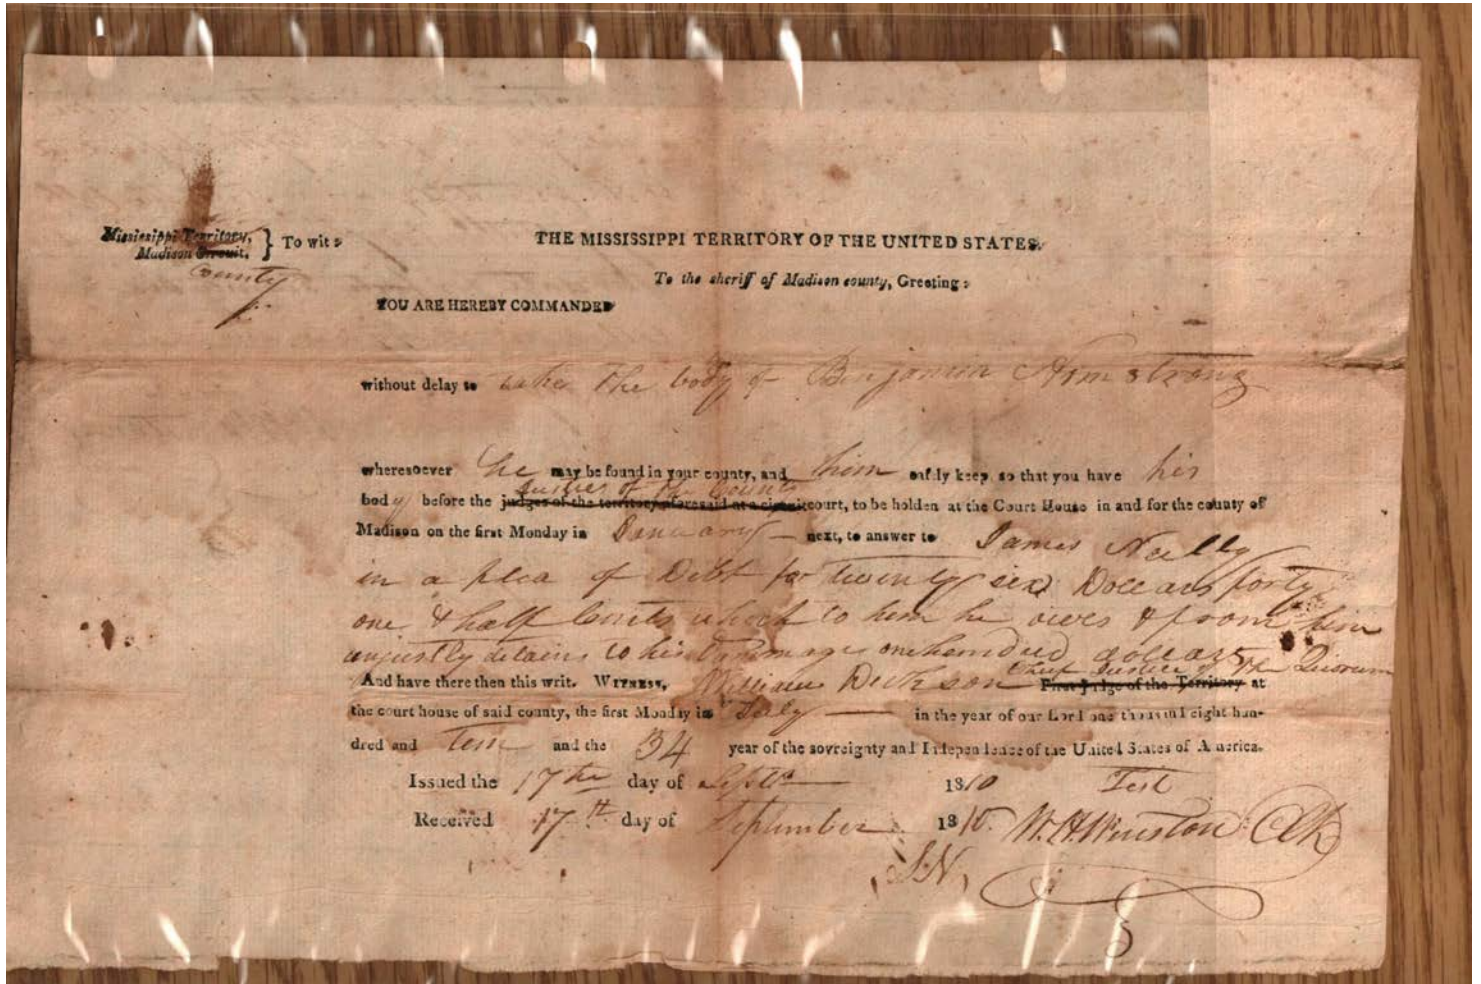 Mississippi Territory, } To wit:
Madison Circuit.
County
THE MISSISSIPPI TERRITORY OF THE UNITED STATES.
To the sheriff of Madison county, Greeting:
YOU ARE HEREBY COMMANDED
without delay to take the body of Benjamin Armstrong
wheresoever he may be found in your county, and him safely keep, so that you have his
Justices of the County
body before the judges of the territory aforesaid at a circuit court, to be holden at the Court House in and for the county of
Madison on the first Monday in January next, to answer to James Neelly
in a plea of Debt for twenty six Dollars forty
one & half Cents which to him he owes & from him
unjustly detains to his Dammage one hundred dollars
Chief Justice of the Quorum
And have there then this writ. WITNESS, William Dickson First Judge of the Territory at
the court house of said county, the first Monday in July in the year of our Lord one thousand eight hun-
dred and ten and the 34 year of the sovreignty and Independence of the United States of America.
Issued the 17th day of Septr 1810 Test
Received 17th day of September 1810. W. H. Winston Clk
S. N.